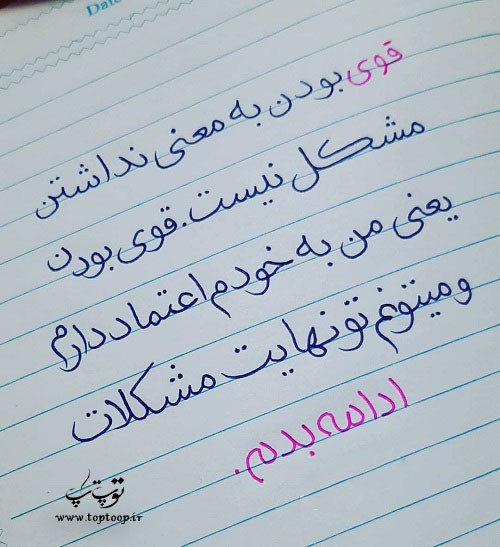 Date
قوی بودن به معنی نداشتن
مشکل نیست. قوی بودن
یعنی من به خودم اعتماد دارم
و میتونم تو نهایت مشکلات
ادامه بدم.
توپ تاپ
www.toptoop.ir